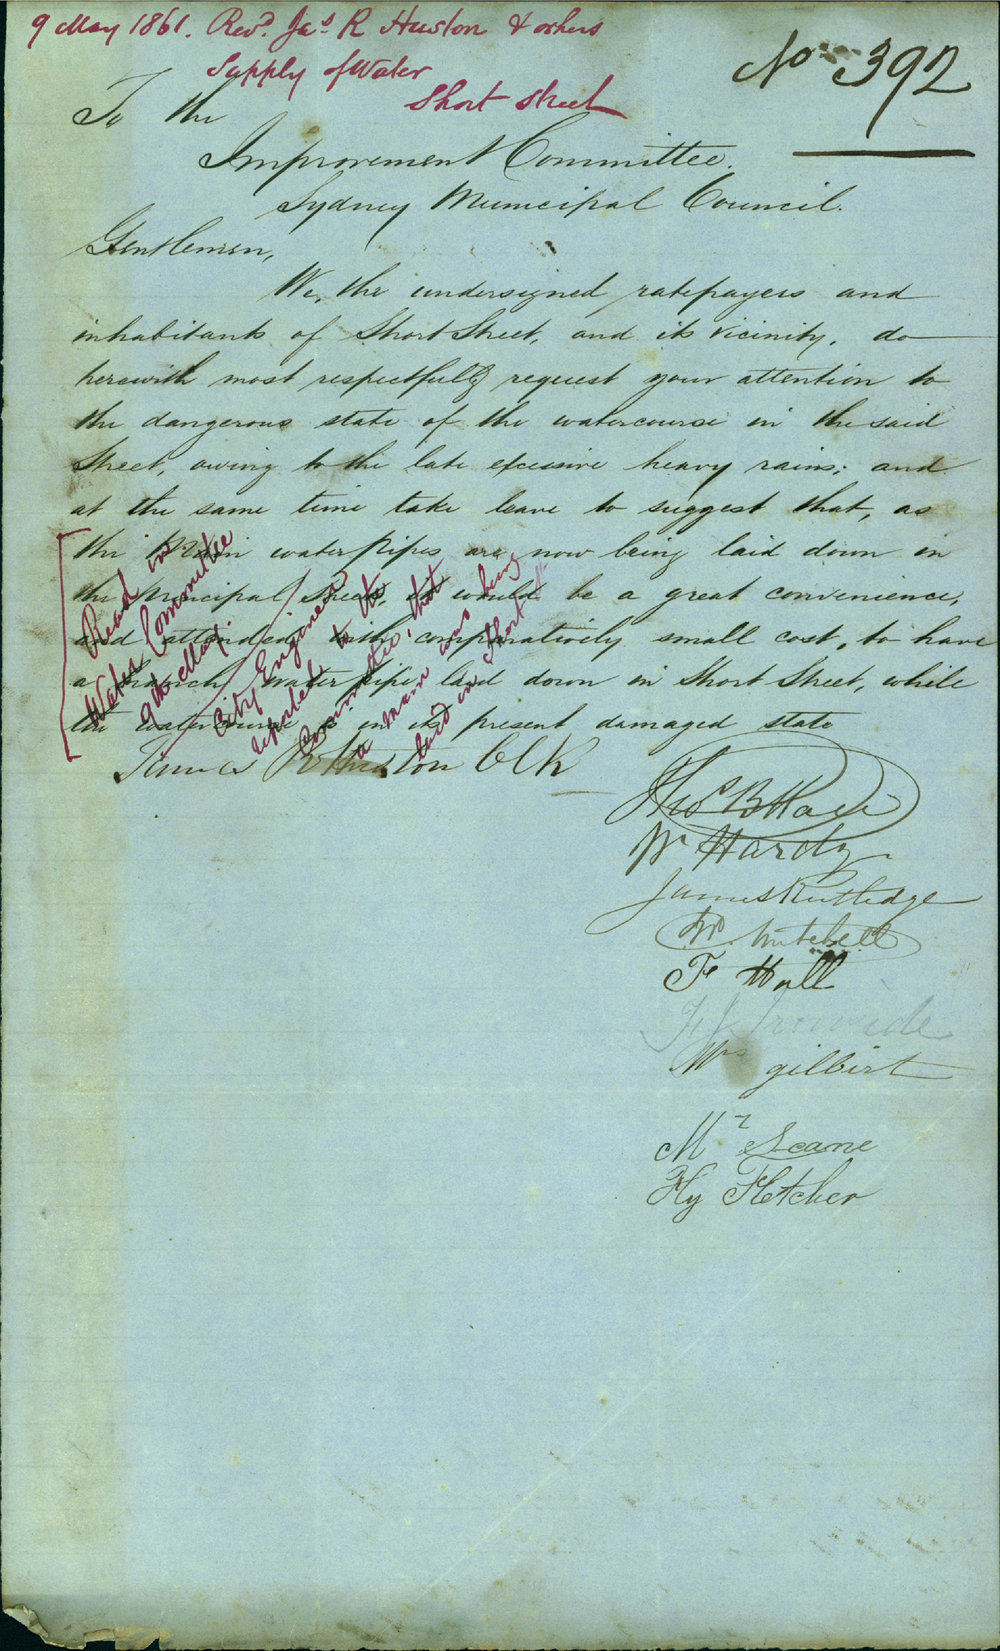 9 May 1861. Revd. Jas R Huston & others
Supply of Water
Short Street
No 392
To the
Improvement Committee.
Sydney Municipal Council.
Gentlemen,
We, the undersigned ratepayers and
inhabitants of Short Street, and its vicinity, do
herewith most respectfully request your attention to
the dangerous state of the watercourse in the said
Street, owing to the late excessive heavy rains; and
at the same time take leave to suggest that, as
the Main water Pipes are now being laid down in
the principal Streets, it would be a great convenience,
and attended with comparatively small cost, to have
a branch water pipe laid down in Short Street, while
the watercourse is in its present damaged state
Read in
Water Committee
9th May
City Engineer
reported to the
Committee, that
a main was being
laid in Short St
James R Huston Clk
Thos B
Wm Hardy
James Rutledge
W. Mitchell
F Hall
Ironside
Mrs gilbirt
Mr Seane
Hy Fletcher